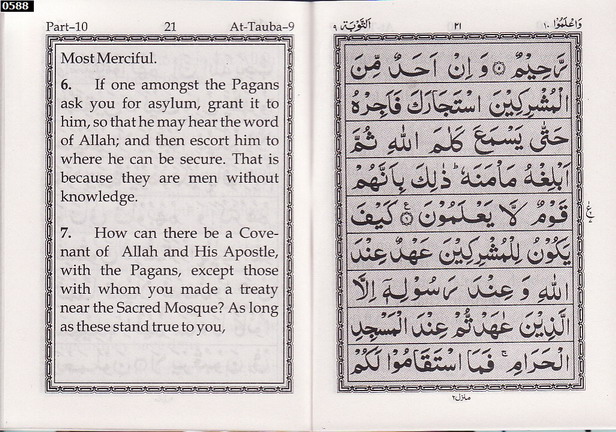 0588
Part–10 21 At-Tauba–9
Most Merciful.
6. If one amongst the Pagans
ask you for asylum, grant it to
him, so that he may hear the word
of Allah; and then escort him to
where he can be secure. That is
because they are men without
knowledge.
7. How can there be a Cove-
nant of Allah and His Apostle,
with the Pagans, except those
with whom you made a treaty
near the Sacred Mosque? As long
as these stand true to you,
وَاعْلَمُوْٓا ١٠ ٢١ اَلتَّوْبَة ٩
رَّحِيْمٌ ۝ وَ اِنْ اَحَدٌ مِّنَ
الْمُشْرِكِيْنَ اسْتَجَارَكَ فَاَجِرْهُ
حَتّٰى يَسْمَعَ كَلٰمَ اللّٰهِ ثُمَّ
اَبْلِغْهُ مَاْمَنَهٗ ؕ ذٰلِكَ بِاَنَّهُمْ
قَوْمٌ لَّا يَعْلَمُوْنَ ۝ كَيْفَ
يَكُوْنُ لِلْمُشْرِكِيْنَ عَهْدٌ عِنْدَ
اللّٰهِ وَ عِنْدَ رَسُوْلِهٖٓ اِلَّا
الَّذِيْنَ عٰهَدْتُّمْ عِنْدَ الْمَسْجِدِ
الْحَرَامِ ۚ فَمَا اسْتَقَامُوْا لَكُمْ
منزل ٢